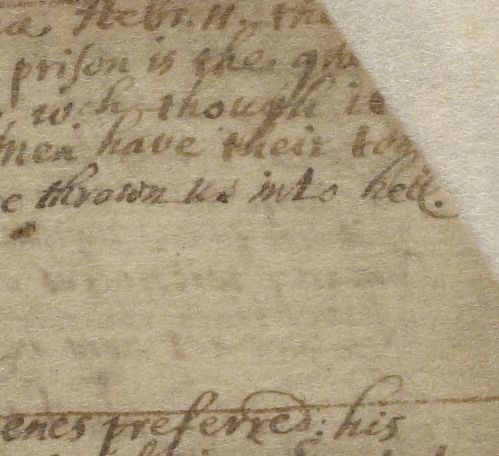 Hebr. 11. the
prison is the
wch though it
men have their
e thrown us into hell.
enes preferred: his